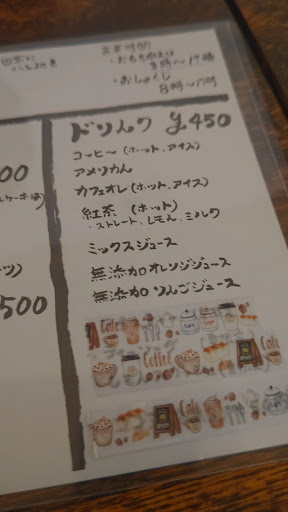 営業時間
8時〜17時
・おしょくじ
8時〜17時
00
ドリンク ¥450
コーヒー (ホット、アイス)
アメリカん
カフェオレ (ホット、アイス)
紅茶 (ホット)
・ストレート、レモン、ミルク
ミックスジュース
無添加オレンジジュース
無添加りんごジュース
500
Cafe
Coffee
Cafe
Cafe